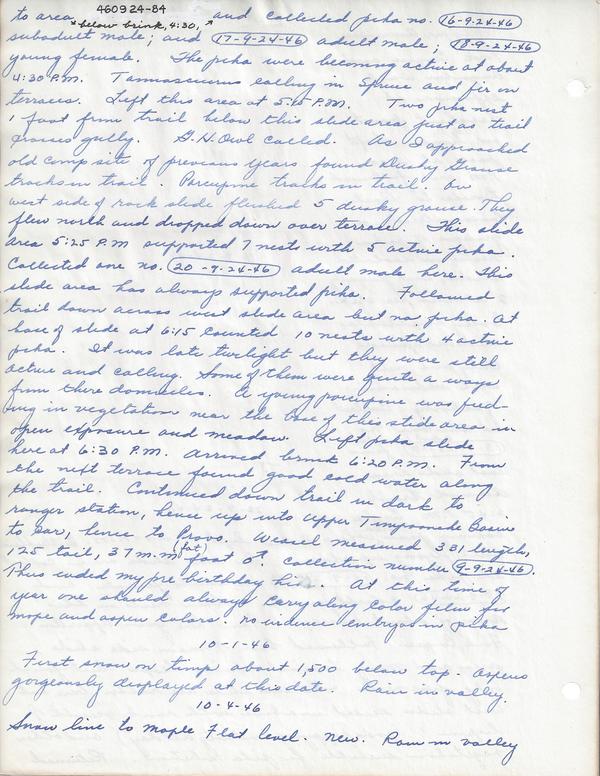 460924-84
to area * below brink, 4:30, and collected pika no. 16-9-24-46
subadult male; and 17-9-24-46 adult male; 18-9-24-46
young female. The pika were becoming active at about
4:30 P.M. Tamiasciurus calling in Spruce and fir on
terraces. Left this area at 5:15 P.M. Two pika nest
1 foot from trail below this slide area just as trail
crosses gully. G.H. Owl called. As I approached
old camp site of previous years found Dusky Grouse
tracks in trail. Porcupine tracks in trail. On
west side of rock slide flushed 5 dusky grouse. They
flew north and dropped down over terrace. This slide
area 5:25 P.M supported 7 nests with 5 active pika.
Collected one no. 20-9-24-46 adult male here. This
slide area has always supported pika. Followed
trail down across west slide area but no pika. At
base of slide at 6:15 counted 10 nests with 4 active
pika. It was late twilight but they were still
active and calling. Some of them were quite a ways
from there domiciles. A young porcupine was feed-
ing in vegetation near the base of this slide area in
open exposure and meadow. Left pika slide
here at 6:30 P.M. Arrived brink 6:20 P.M. From
the next terrace found good cold water along
the trail. Continued down trail in dark to
ranger station, hence up into Upper Timpooneke Basin
to car, hence to Provo. Weasel measured 381 length,
125 tail, 37 m.m (fat) foot ♂. Collection number 9-9-24-46.
Thus ended my pre birthday hike. At this time of
year one should always carry along color film for
mape and aspen colors. no evidence embryos in pika
10-1-46
First snow on timp about 1,500 below top. Aspens
gorgeously displayed at this date. Rain in valley.
10-4-46
Snow line to maple Flat level. new. Rain in valley